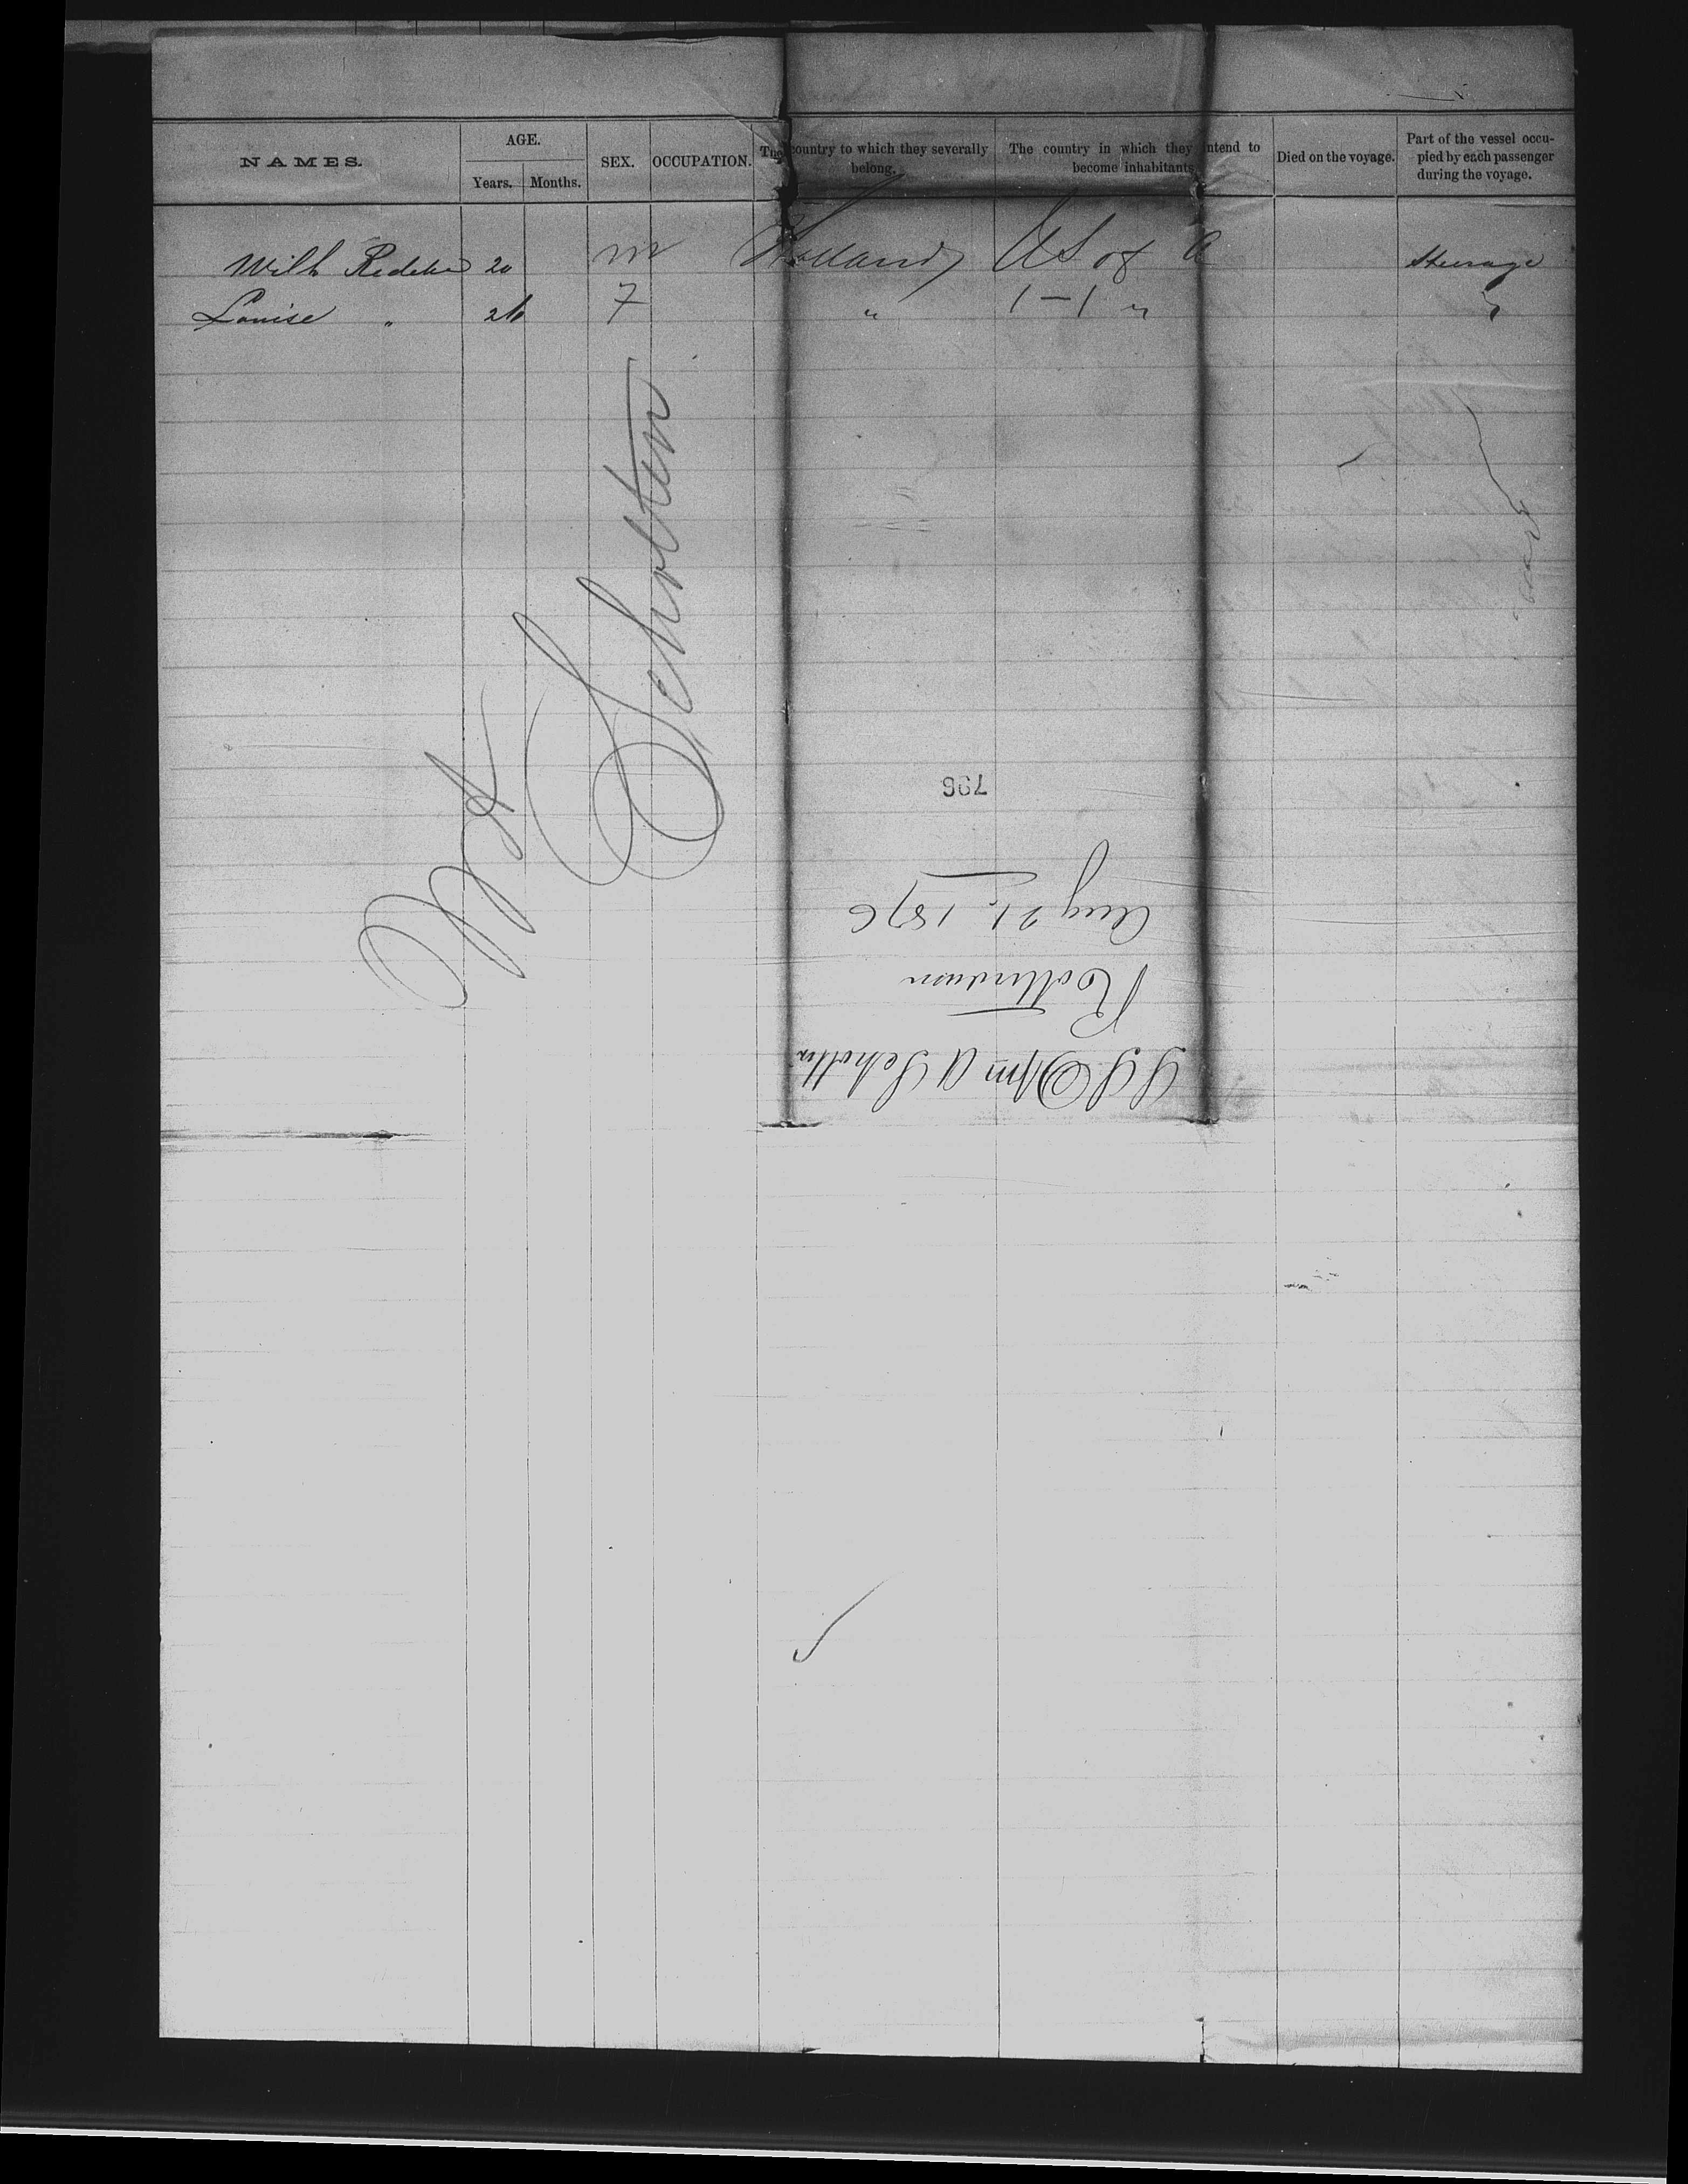 NAMES. AGE. Years. Months. SEX. OCCUPATION. The country to which they severally belong. The country in which they intend to become inhabitants Died on the voyage. Part of the vessel occupied by each passenger during the voyage.
Wilh Redeker 20 m Holland U S of A Steerage
Louise " 26 F " " "
W A Scholten
796
Aug 21, 1876
Rotterdam
S S Wm A Scholten